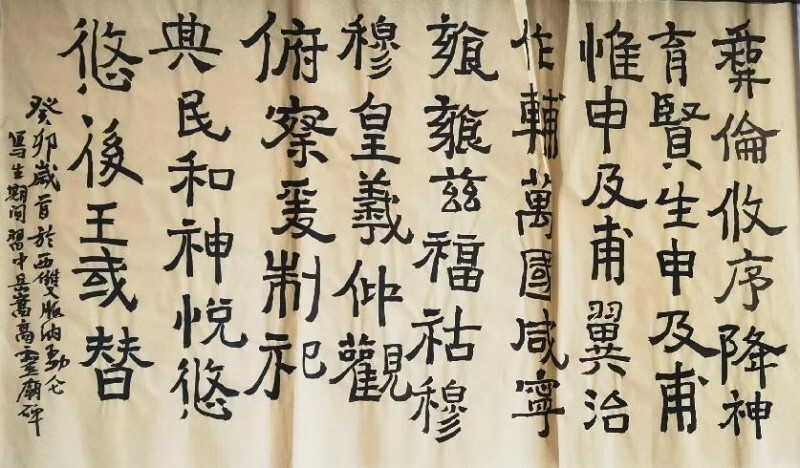 彝倫攸序降神
育賢生申及甫
惟申及甫翼治
作輔萬國咸寧
兹福祜穆
穆皇羲仰觀
俯察爰制祀
典民和神悅悠
悠後王或替
癸卯歲首於西雙版納勐仑
写生期间習中岳嵩高靈廟碑